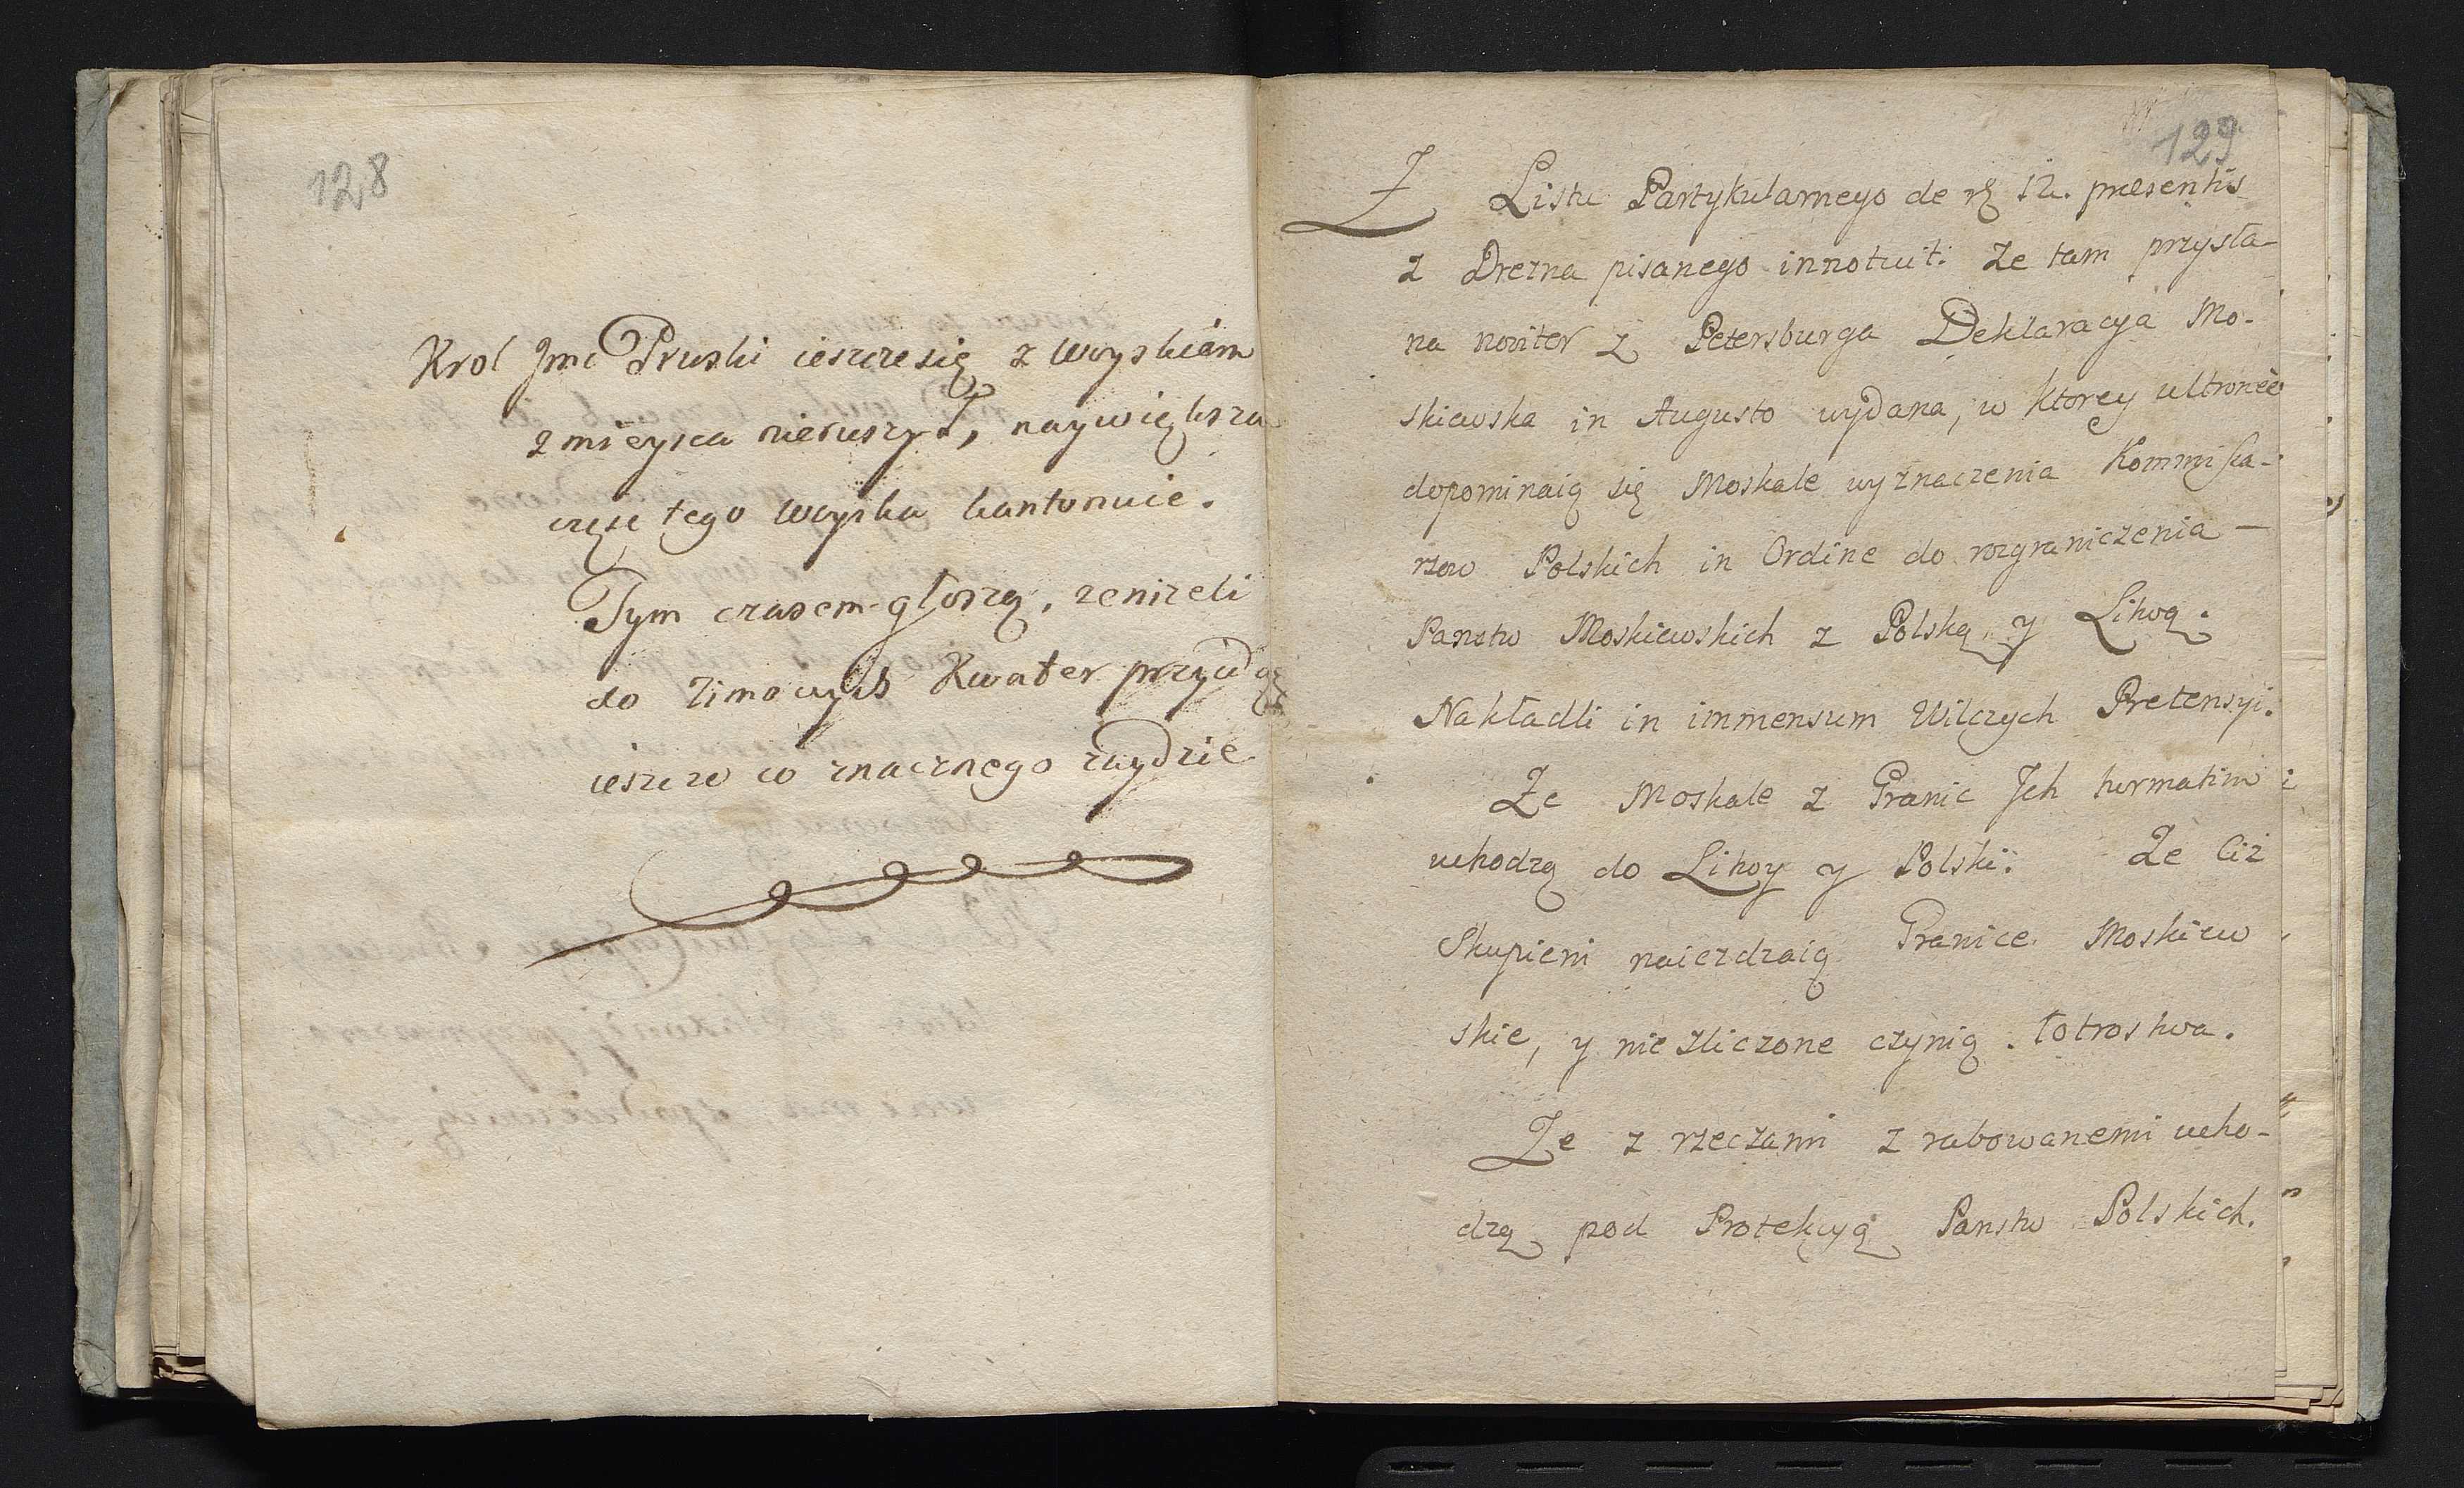 128
Krol Jmć Pruski ieszcze się z woyskiem
z mieysca nieruszył, naywiększa
częsc tego woyska kantonuie.
Tym czasem głoszą, zenizeli
do zimowych Kwater przyidą
ieszcze co znacznego zaydzie
129
Z Listu Partykularnego de 12. præsentis
z Drezna pisanego innotuit: Ze tam przysła-
na noviter z Petersburga Deklaracya Mo-
skiewska in Augusto wydana, w ktorey ultroneè
dopominaią się Moskale wyznaczenia Kommissa-
rzow Polskich in Ordine do rozgraniczenia —
Panstw Moskiewskich z Polską y Litwą.
Nakładli in immensum Wilczych Pretensyi.
Ze Moskale z Granic Ich turmatim
uchodzą do Litwy y Polski: Ze Ciż
Skupieni naiezdzaią Granice Moskiew
skie, y nie zliczone czynią łotrostwa.
Ze z rzeczami z rabowanemi ucho-
dzą pod Protekcyą Panstw Polskich.